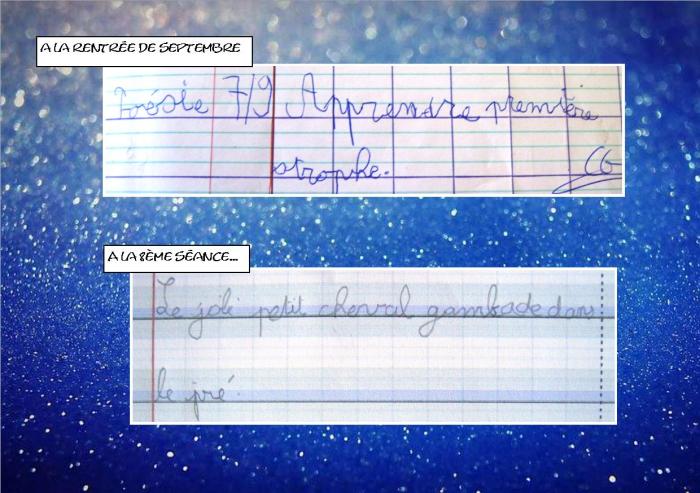 A LA RENTRÉE DE SEPTEMBRE
Poésie 7/9 Apprendre première
strophe.
A LA 8ÈME SÉANCE...
Le joli petit cheval gambade dans
le pré.